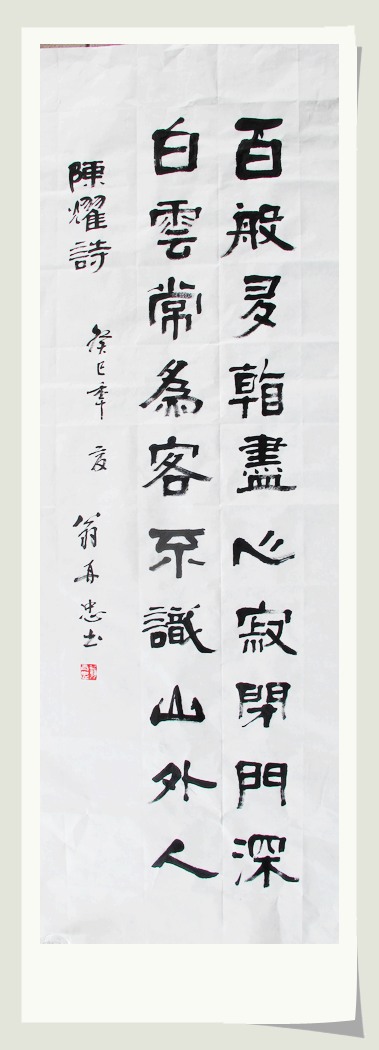 百般多盡心寂閉門深
白雲常為客不識山外人
陳耀詩 癸巳年 夏 翁再忠书